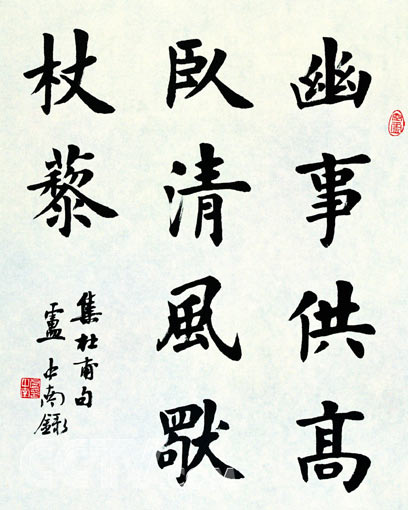 幽事供高
臥清風獨
杖藜
集杜甫句
盧中南錄